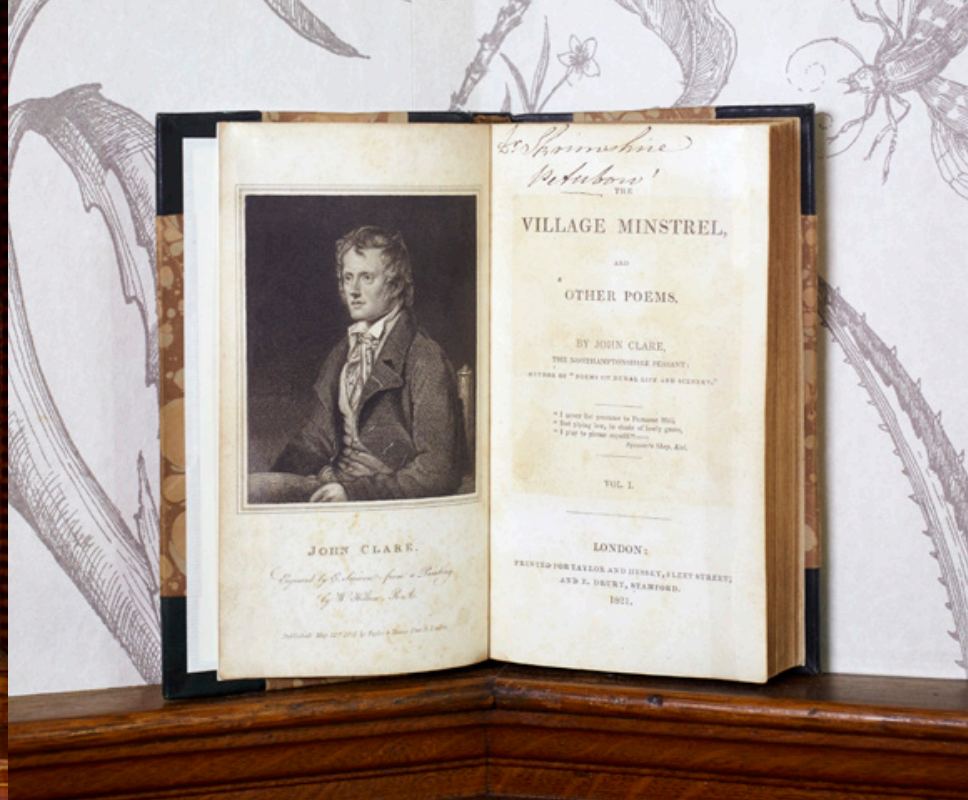 JOHN CLARE.
Engraved by E. Scriven from a Painting
by W. Hilton, R.A.
THE
VILLAGE MINSTREL,
AND
OTHER POEMS.
BY JOHN CLARE,
THE NORTHAMPTONSHIRE PEASANT;
AUTHOR OF "POEMS ON RURAL LIFE AND SCENERY."
" I never list presume to Parnasse Hill,
" But piping low, in shade of lowly grove,
" I play to please myself"
Spenser's Shep. Kal.
VOL. I.
LONDON:
PRINTED FOR TAYLOR AND HESSEY, FLEET STREET;
AND E. DRURY, STAMFORD.
1821.